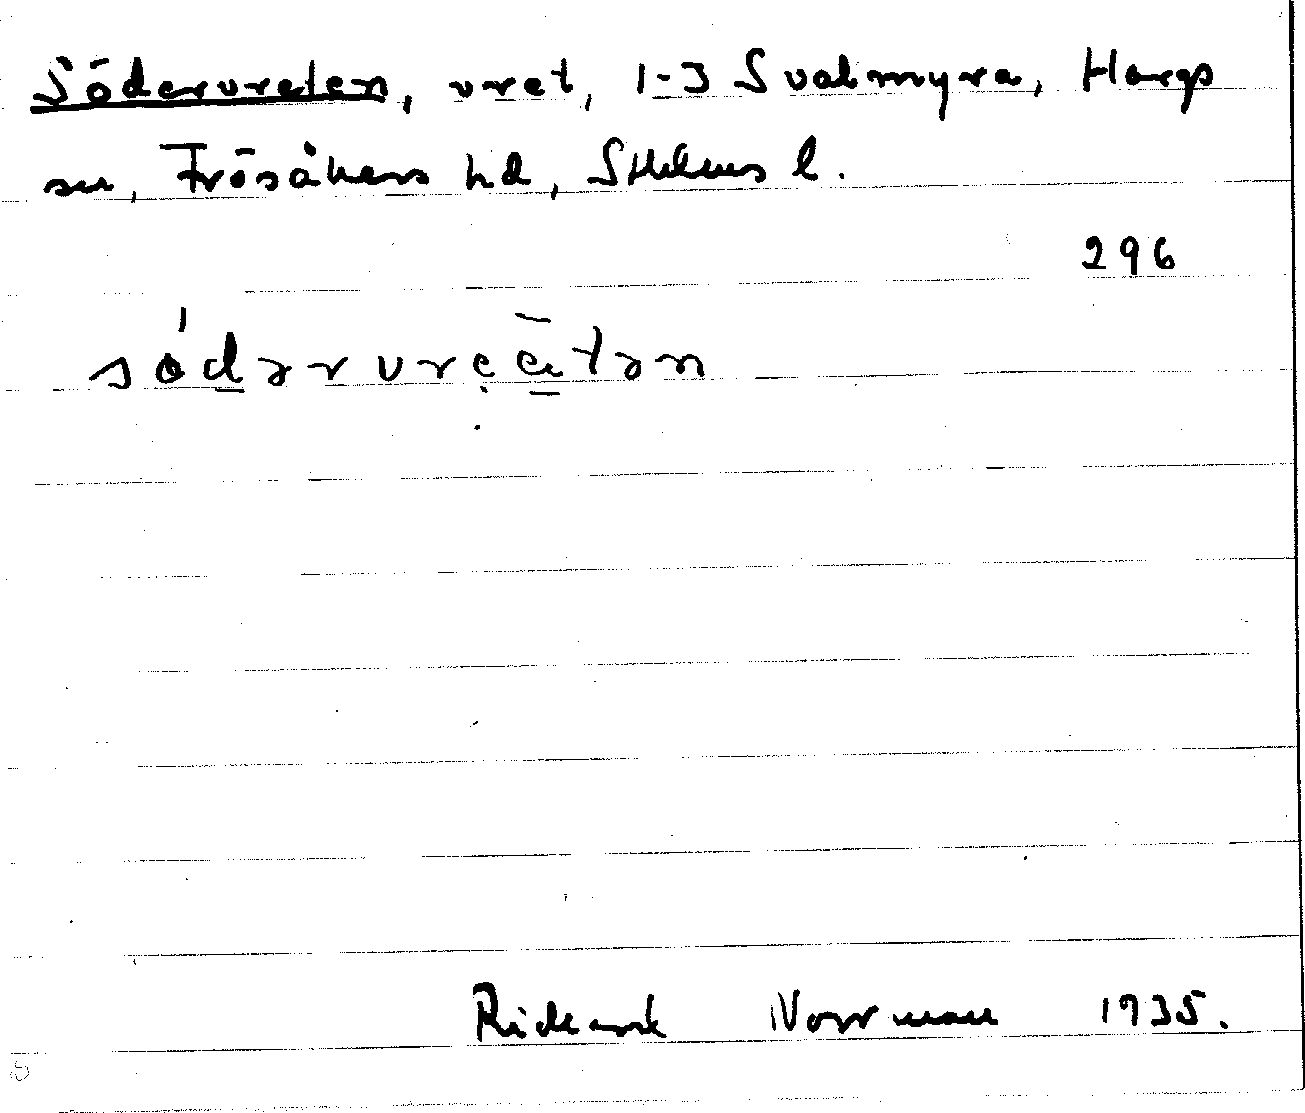 Södervreten, vret, 1-3 Svalmyra, Hargs
sn, Frösåkers hd, Sthlms l.
296
Rickard Norrman 1935.